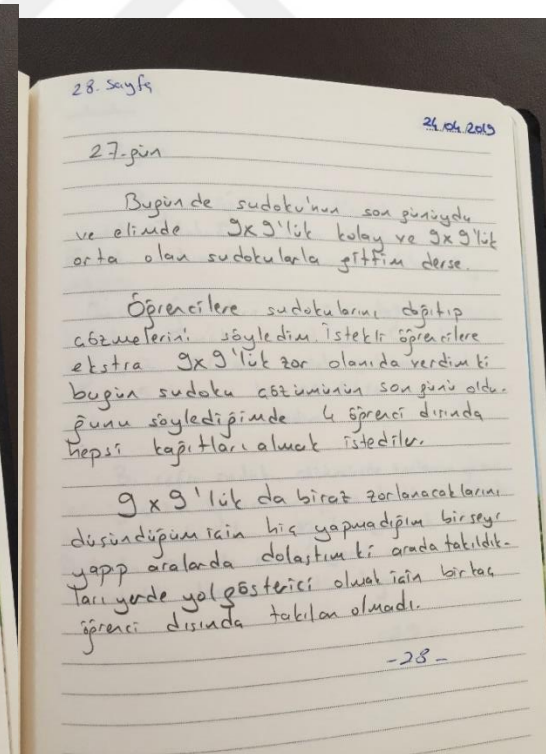 28. Sayfa
24.04.2019
27.gün
Bugün de sudoku'nun son günüydü
ve elimde 9x9'lük kolay ve 9x9'lük
orta olan sudokularla gittim derse.
Öğrencilere sudokularını dağıtıp
çözmelerini söyledim. İstekli öğrencilere
ekstra 9x9'lük zor olanıda verdim ki
bugün sudoku çözümünün son günü oldu-
ğunu söylediğimde 4 öğrenci dışında
hepsi kağıtları almak istediler.
9x9'lük da biraz zorlanacaklarını
düşündüğüm için hiç yapmadığım birşeyi
yapıp aralarda dolaştım ki arada takıldık-
ları yerde yol gösterici olmak için birkaç
öğrenci dışında takılan olmadı.
-28-